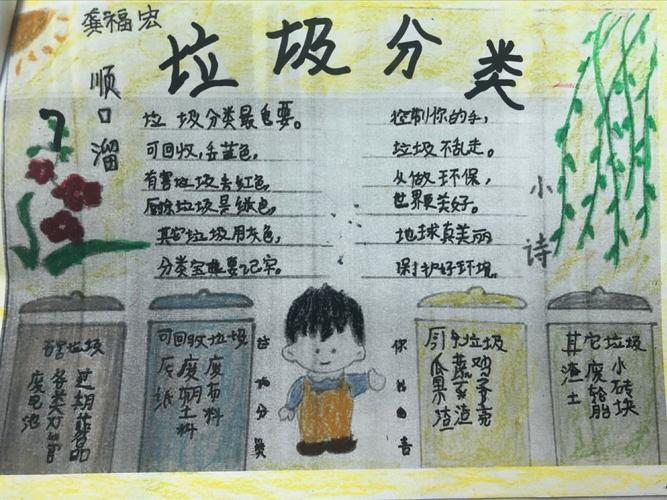 龚福宏
垃圾分类
顺口溜
垃圾分类最重要。
可回收,丢蓝色,
有害垃圾去红色,
厨余垃圾是绿色,
其它垃圾用灰色,
分类宝典要记牢。
控制你的手,
垃圾不乱走。
从做环保,
世界更美好。
地球真美丽
保护好环境。
小诗
有害垃圾
过期药品
各类灯管
废电池
可回收垃圾
废布料
废塑料
废纸
垃圾分类
你我有责
厨余垃圾
鸡子壳
蔬菜渣
瓜果渣
其它垃圾
小砖块
废轮胎
渣土